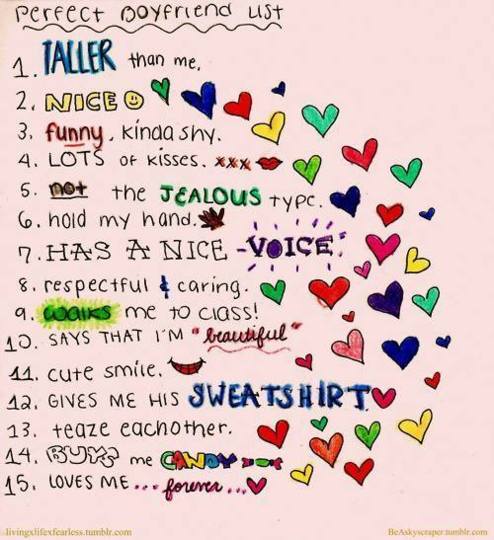 Perfect Boyfriend List
1. TALLER than me.
2. NICE
3. funny. kinda shy.
4. LOTS of kisses. xxx
5. not the JEALOUS type.
6. hold my hand.
7. HAS A NICE -VOICE.
8. respectful & caring.
9. walks me to class!
10. SAYS THAT I'M "beautiful"
11. cute smile.
12. GIVES ME HIS SWEATSHIRT
13. teaze eachother.
14. BUYS me CANDY
15. LOVES ME... forever...
livingxlifexfearless.tumblr.com
BeAskyscraper.tumblr.com